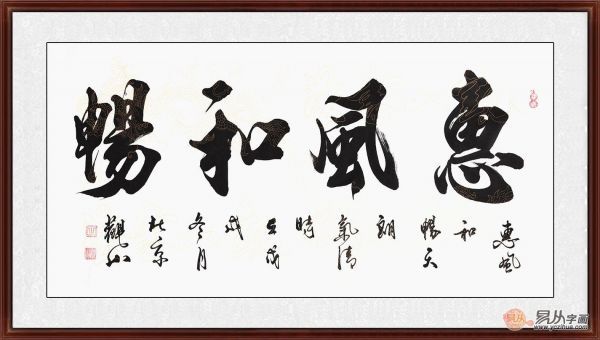 惠風和暢
惠風
和
暢天
朗
氣清
時
在戊
戌
冬月
北京
易从字画
www.yczihua.com